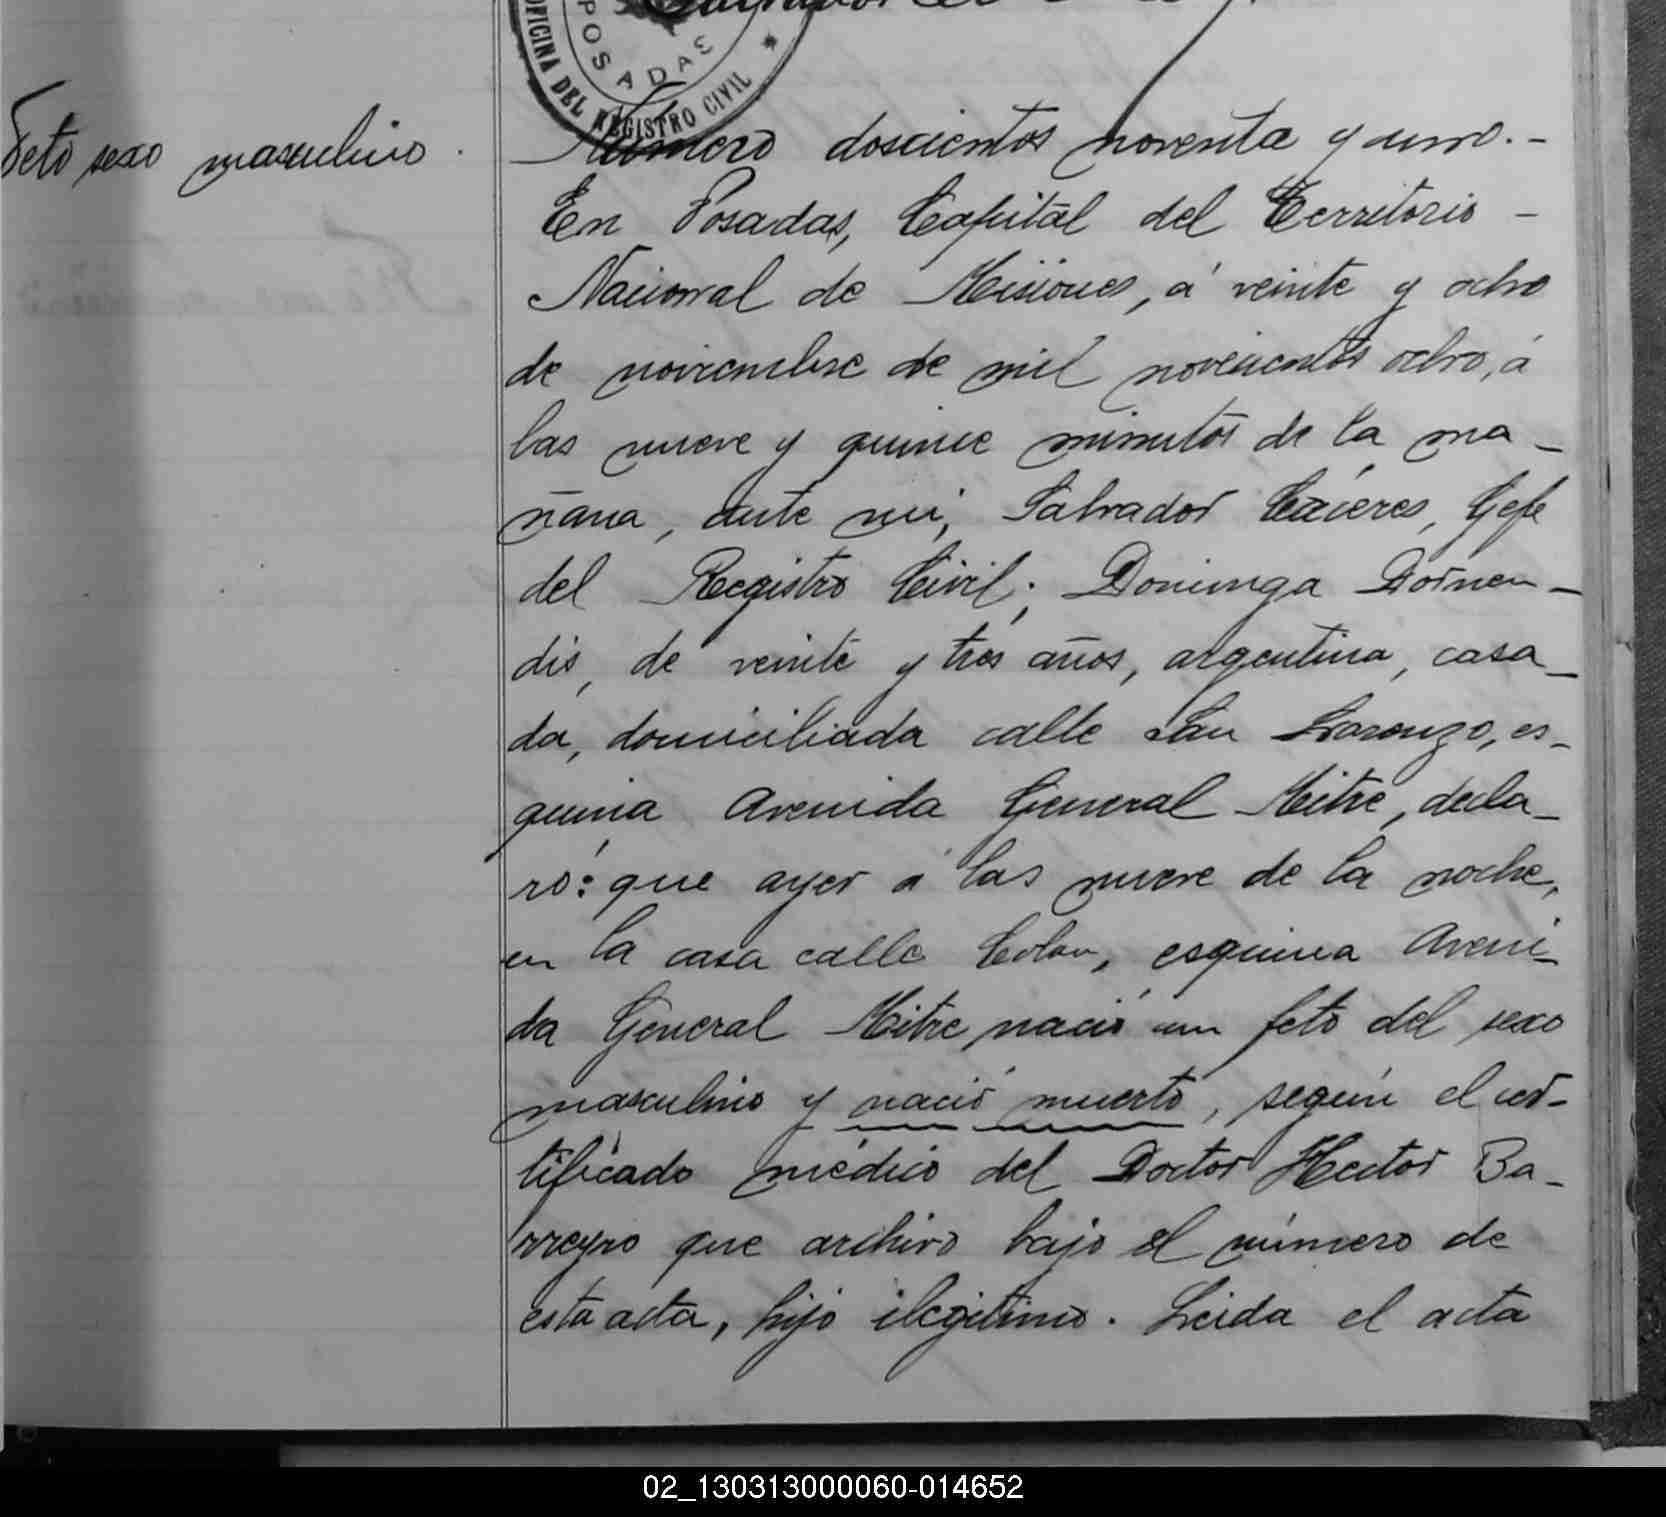 POSADAS
OFICINA DEL REGISTRO CIVIL
Feto sexo masculino.
Número doscientos noventa y uno.-
En Posadas, Capital del Territorio -
Nacional de Misiones, á veinte y ocho
de noviembre de mil novecientos ocho, á
las nueve y quince minutos de la ma-
ñana, ante mi, Salvador Cáceres, Gefe
del Registro Civil; Dominga Dornen-
dis, de veinte y tres años, argentina, casa-
da, domiciliada calle San Lorenzo, es-
quina Avenida General Mitre, decla-
ró: que ayer á las nueve de la noche,
en la casa calle Colon, esquina Aveni-
da General Mitre nació un feto del sexo
masculino y nació muerto, según el cer-
tificado médico del Doctor Hector Ba-
rreyro que archivo bajo el número de
esta acta, hijo ilegitimo. Leida el acta
02_130313000060-014652